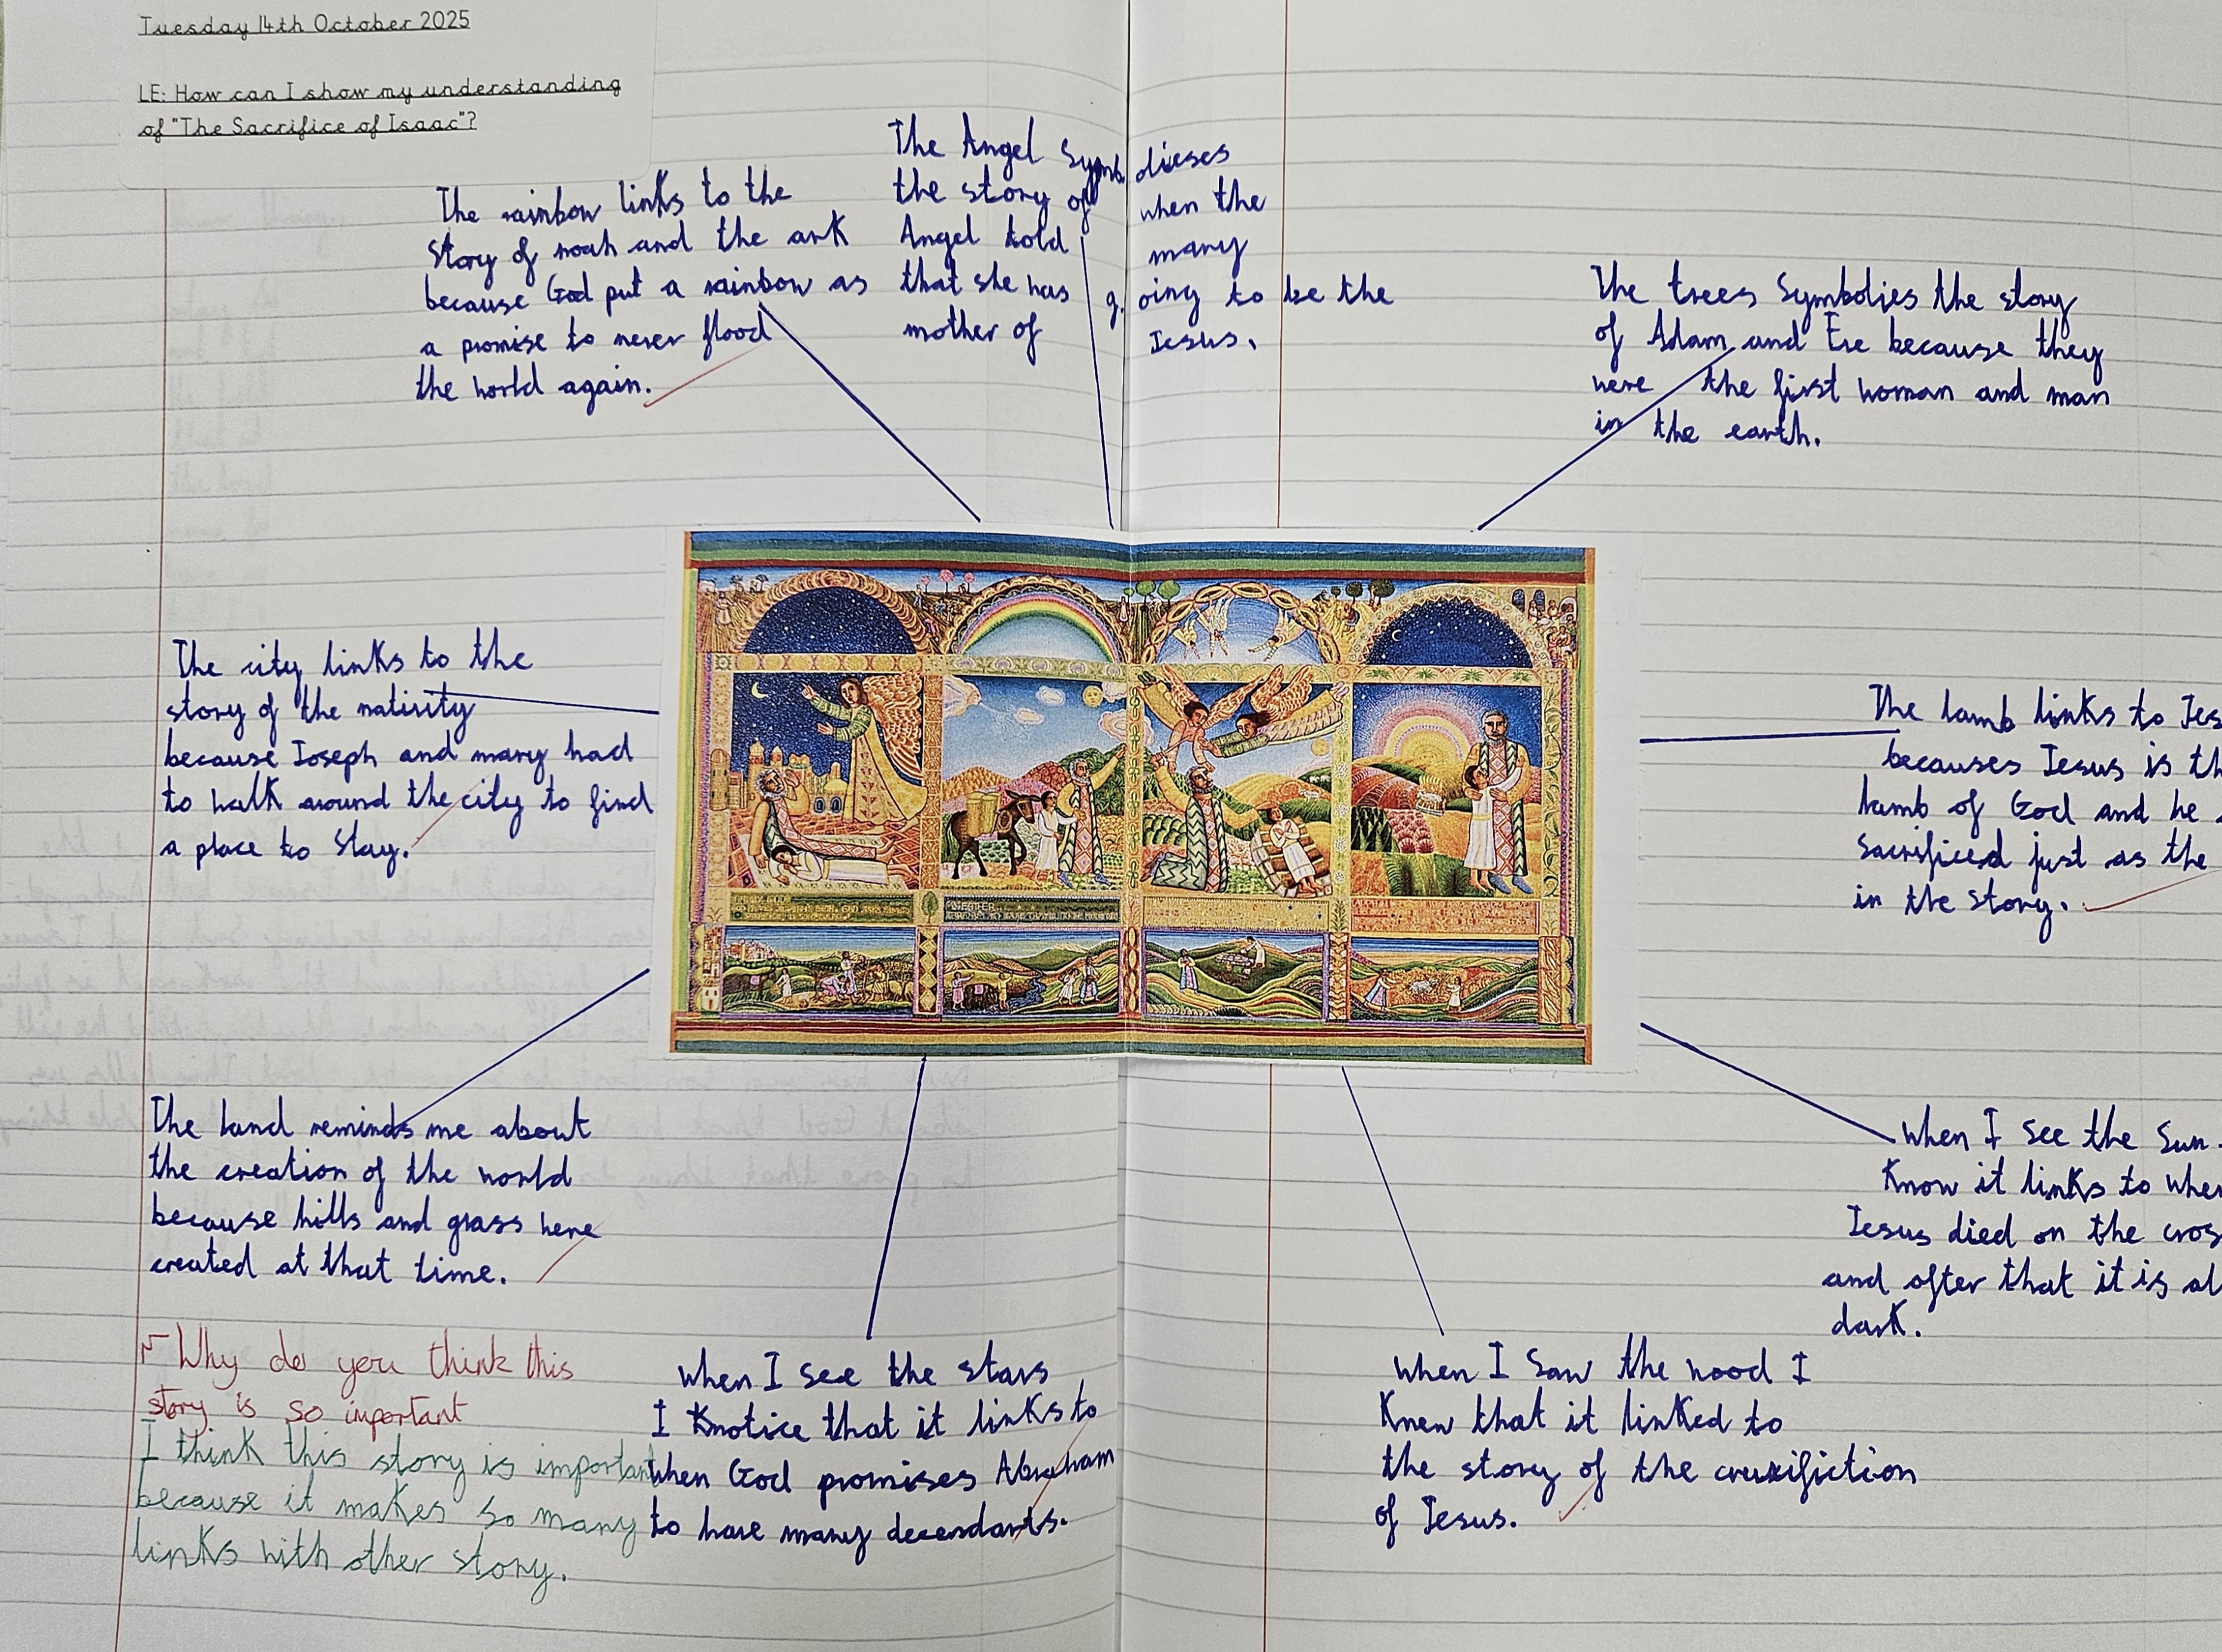 Tuesday 14th October 2025
LE: How can I show my understanding
of "The Sacrifice of Isaac"?
The rainbow links to the
story of noah and the ark
because God put a rainbow as
a promise to never flood
the world again.
The Angel Symb dieses
the story of when the
Angel told mary
that she has g. oing to be the
mother of Jesus.
The trees Symbolies the story
of Adam and Eve because they
were the first woman and man
in the earth.
The city links to the
story of the nativity
because Joseph and mary had
to walk around the city to find
a place to Stay.
The lamb links to Jes
becauses Jesus is th
lamb of God and he
Sacrificed just as the
in the story.
The land reminds me about
the creation of the world
because hills and grass were
created at that time.
when I see the Sun
Know it links to when
Jesus died on the cros
and after that it is al
dark.
Why do you think this
story is so important
I think this story is important
because it makes so many
links with other story.
when I see the stars
I Knotice that it links to
when God promises Abraham
to have many decendants.
when I Saw the wood I
Knew that it linked to
the story of the cruxifiction
of Jesus.